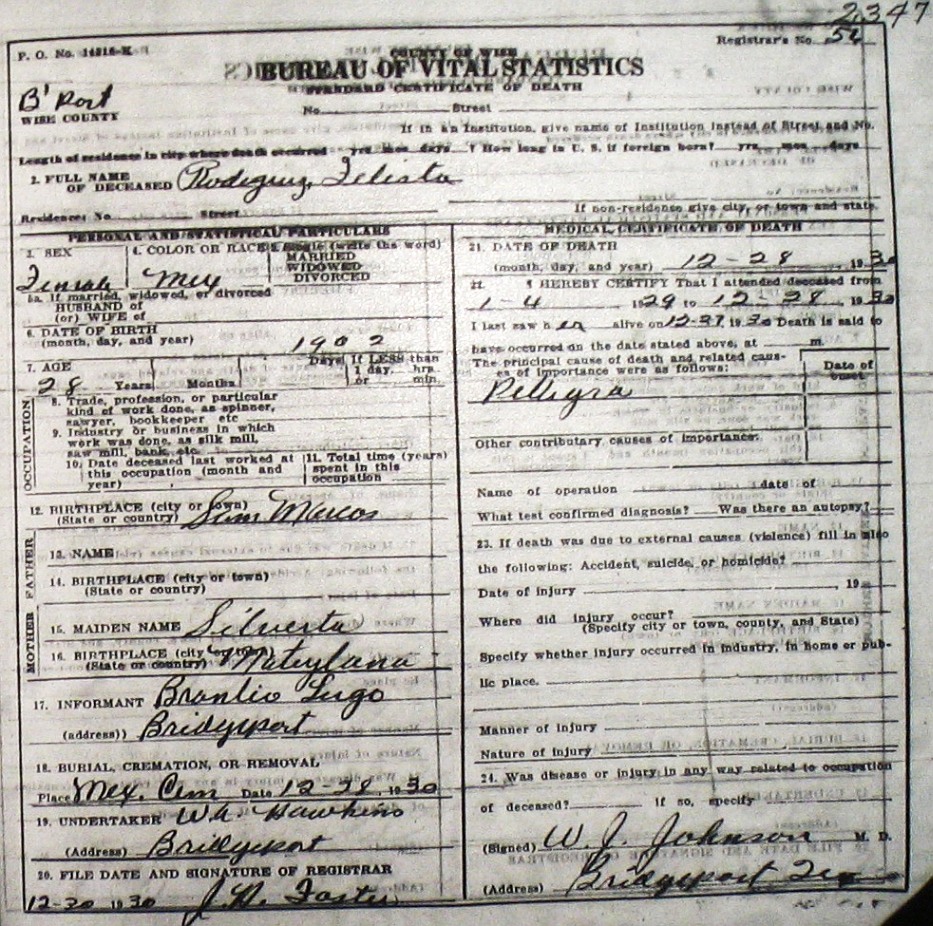 2347
P. O. No. 14316-K
COUNTY OF WISE
Registrar's No. 54
BUREAU OF VITAL STATISTICS
STANDARD CERTIFICATE OF DEATH
B'Port
WISE COUNTY
No. Street
If in an Institution, give name of Institution instead of Street and No.
Length of residence in city where death occurred yrs mos days ? How long in U. S. if foreign born? yrs mos days
2. FULL NAME
OF DECEASED
Residence: No. Street
If non-residence give city, or town and state.
PERSONAL AND STATISTICAL PARTICULARS
3. SEX
Female
4. COLOR OR RACE
Mex
5. Single (write the word)
MARRIED
WIDOWED
DIVORCED
5a. If married, widowed, or divorced
HUSBAND of
(or) WIFE of
6. DATE OF BIRTH
(month, day, and year) 1902
7. AGE
28 Years Months Days If LESS than
1 day, hrs.
or min.
OCCUPATION
8. Trade, profession, or particular
kind of work done, as spinner,
sawyer, bookkeeper etc
9. Industry or business in which
work was done, as silk mill,
saw mill, bank, etc.
10. Date deceased last worked at
this occupation (month and
year)
11. Total time (years)
spent in this
occupation
12. BIRTHPLACE (city or town)
(State or country) San Marcos
FATHER
13. NAME
14. BIRTHPLACE (city or town)
(State or country)
MOTHER
15. MAIDEN NAME
16. BIRTHPLACE (city or town)
(State or country)
17. INFORMANT Lugo
(address)) Bridgeport
18. BURIAL, CREMATION, OR REMOVAL
Place Mex. Cem Date 12-28, 1930
19. UNDERTAKER Hawkins
(Address) Bridgeport
20. FILE DATE AND SIGNATURE OF REGISTRAR
12-30 1930 Foster
MEDICAL CERTIFICATE OF DEATH
21. DATE OF DEATH
(month, day, and year) 12-28 1930
22. I HEREBY CERTIFY That I attended deceased from
1-4 1929 to 12-28, 1930
I last saw h er alive on 12-27 1930 Death is said to
have occurred on the date stated above, at m.
The principal cause of death and related caus-
es of importance were as follows:
Date of
onset
Pellegra
Other contributary causes of importance:
Name of operation date of
What test confirmed diagnosis? Was there an autopsy?
23. If death was due to external causes (violence) fill in also
the following: Accident, suicide, or homicide?
Date of injury 19
Where did injury occur?
(Specify city or town, county, and State)
Specify whether injury occurred in industry, in home or pub-
lic place.
Manner of injury
Nature of injury
24. Was disease or injury in any way related to occupation
of deceased? If so, specify
(Signed) W. J. Johnson M. D.
(Address) Bridgeport Tex